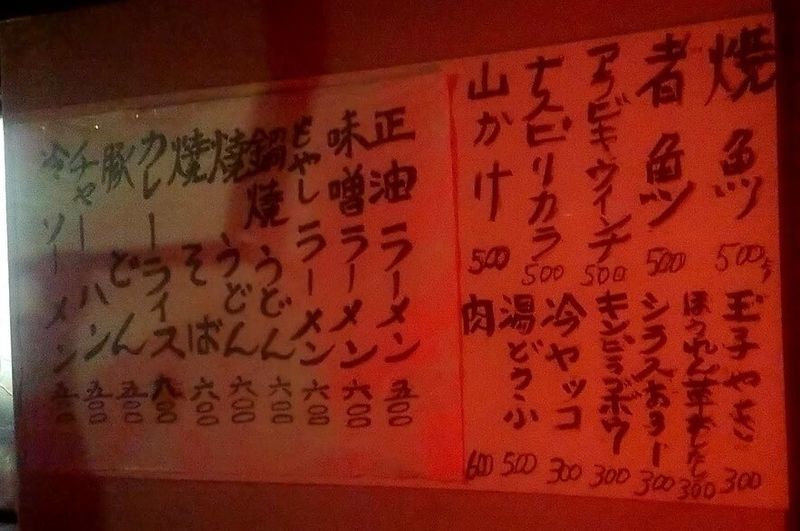 焼魚 500
者魚 500
アラビキウインナ 500
ナスピリカラ 500
山かけ 500
玉子やき 300
ほうれん草おしたし 300
シラスおろし 300
キンピラゴボウ 300
冷ヤッコ 300
湯どうふ 500
肉 600
正油ラーメン 五〇〇
味噌ラーメン 六〇〇
もやしラーメン 六〇〇
鍋焼うどん 六〇〇
燒うどん 六〇〇
燒そば 六〇〇
カレーライス
豚どん 五〇〇
チャーハン 五〇〇
冷ソーメン 五〇〇